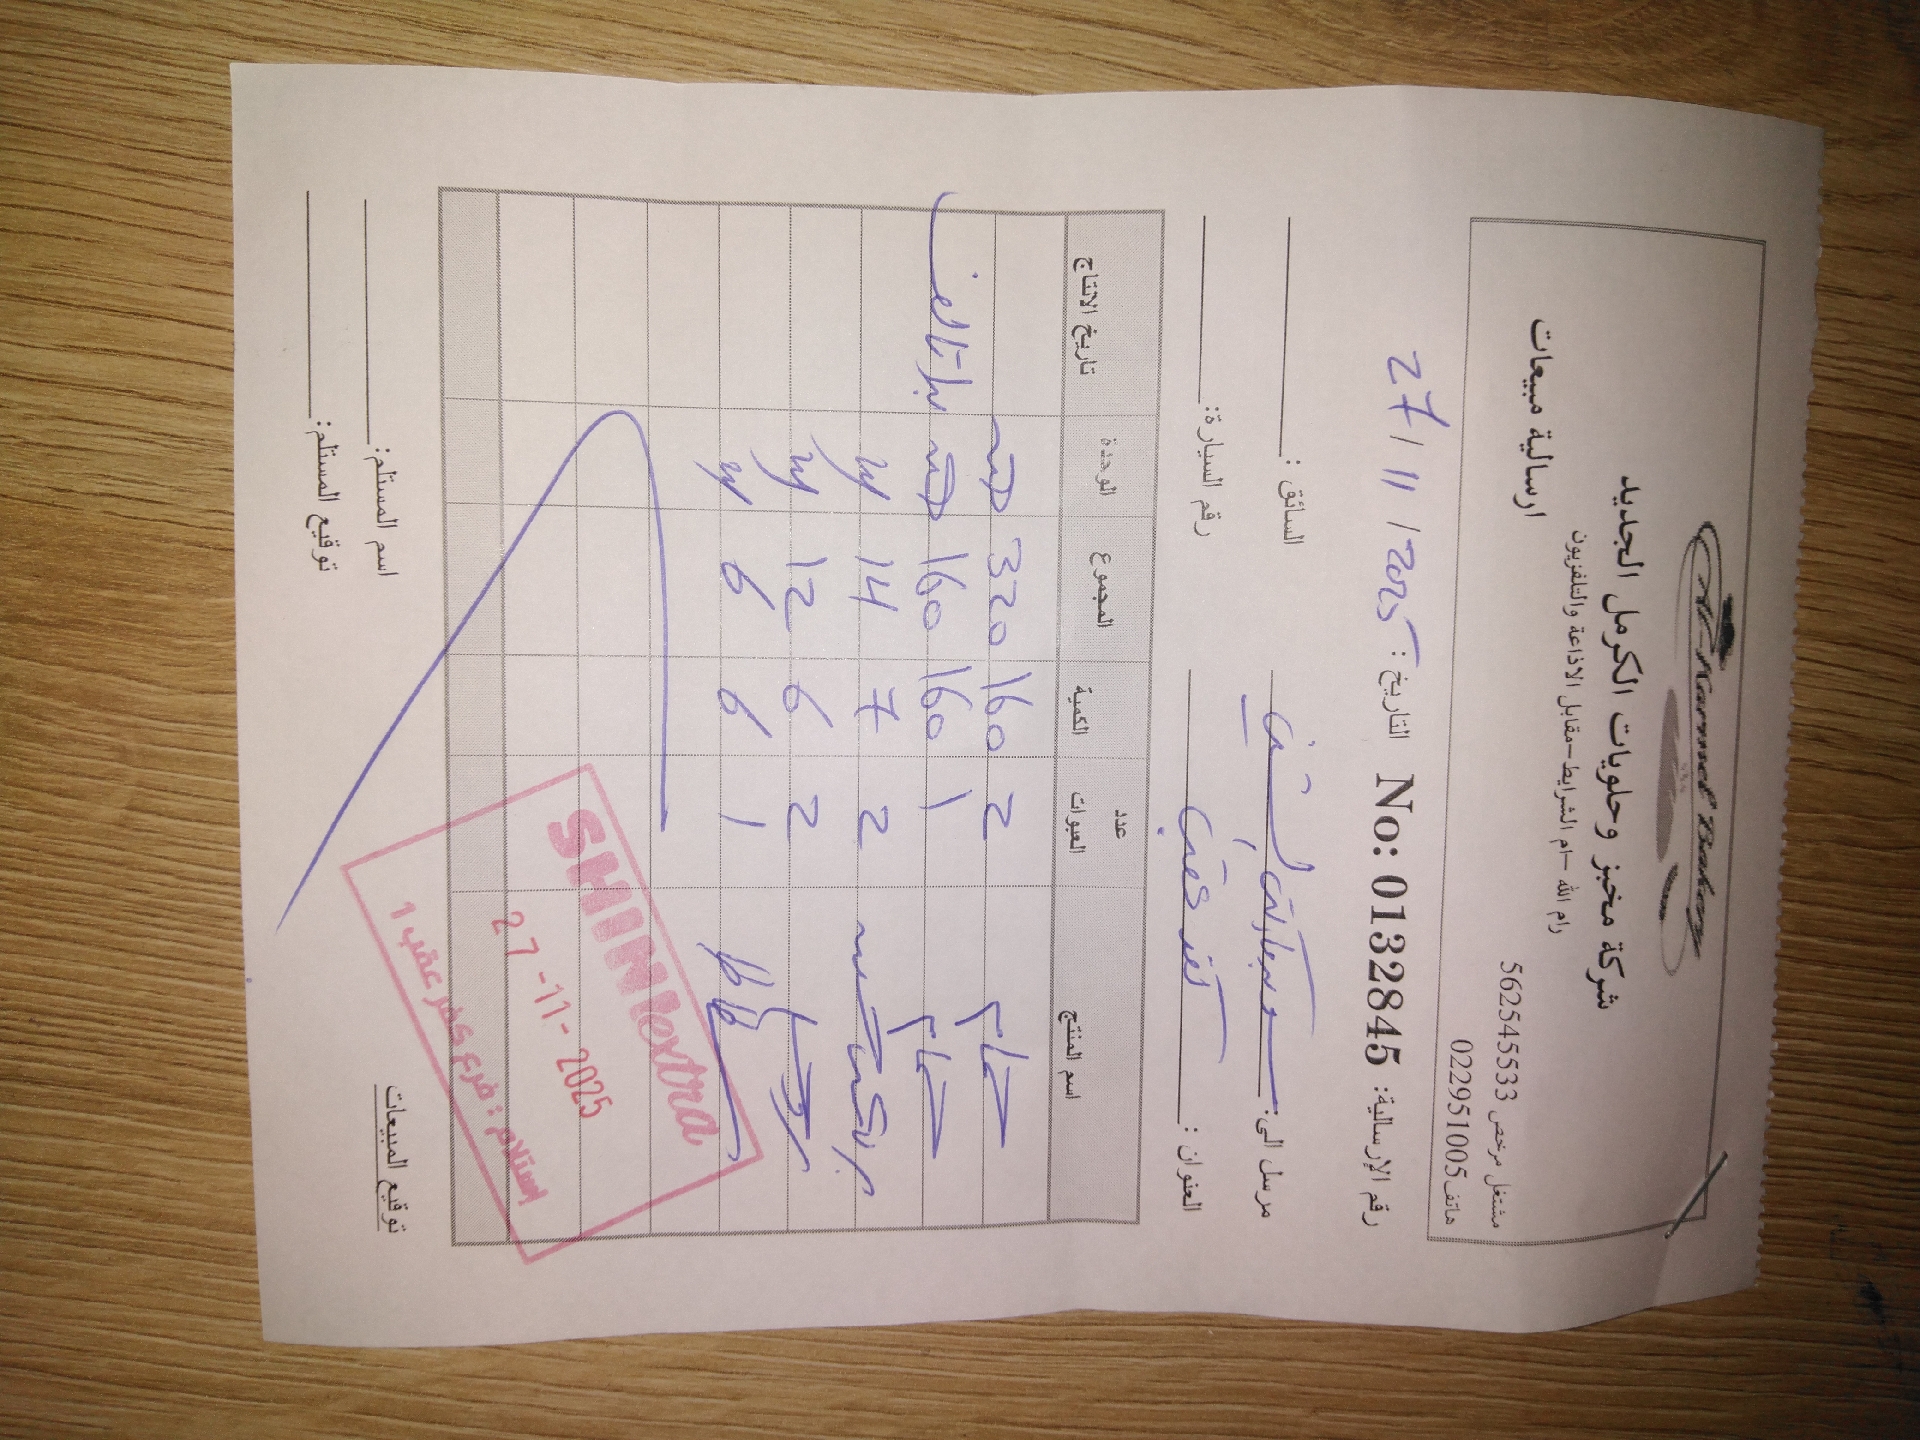 Al-Karmel Bakery
شركة مخبز وحلويات الكرمل الجديد
رام الله -ام الشرايط-مقابل الاذاعة والتلفزيون
ارسالية مبيعات
مشتغل مرخص 562545533
هاتف 022951005
رقم الإرسالية: No: 0132845 التاريخ: 27/11/2025
مرسل الى: السائق:
العنوان: كفر عقب رقم السيارة:
اسم المنتج عدد العبوات الكمية المجموع الوحدة تاريخ الانتاج
حمام 2 160 320
حمام 1 160 160
2 7 14
2 6 12
1 6 6
SHINI extra
27-11-2025
إستلام: فرع كفر عقب 1
توقيع المبيعات
اسم المستلم:
توقيع المستلم: